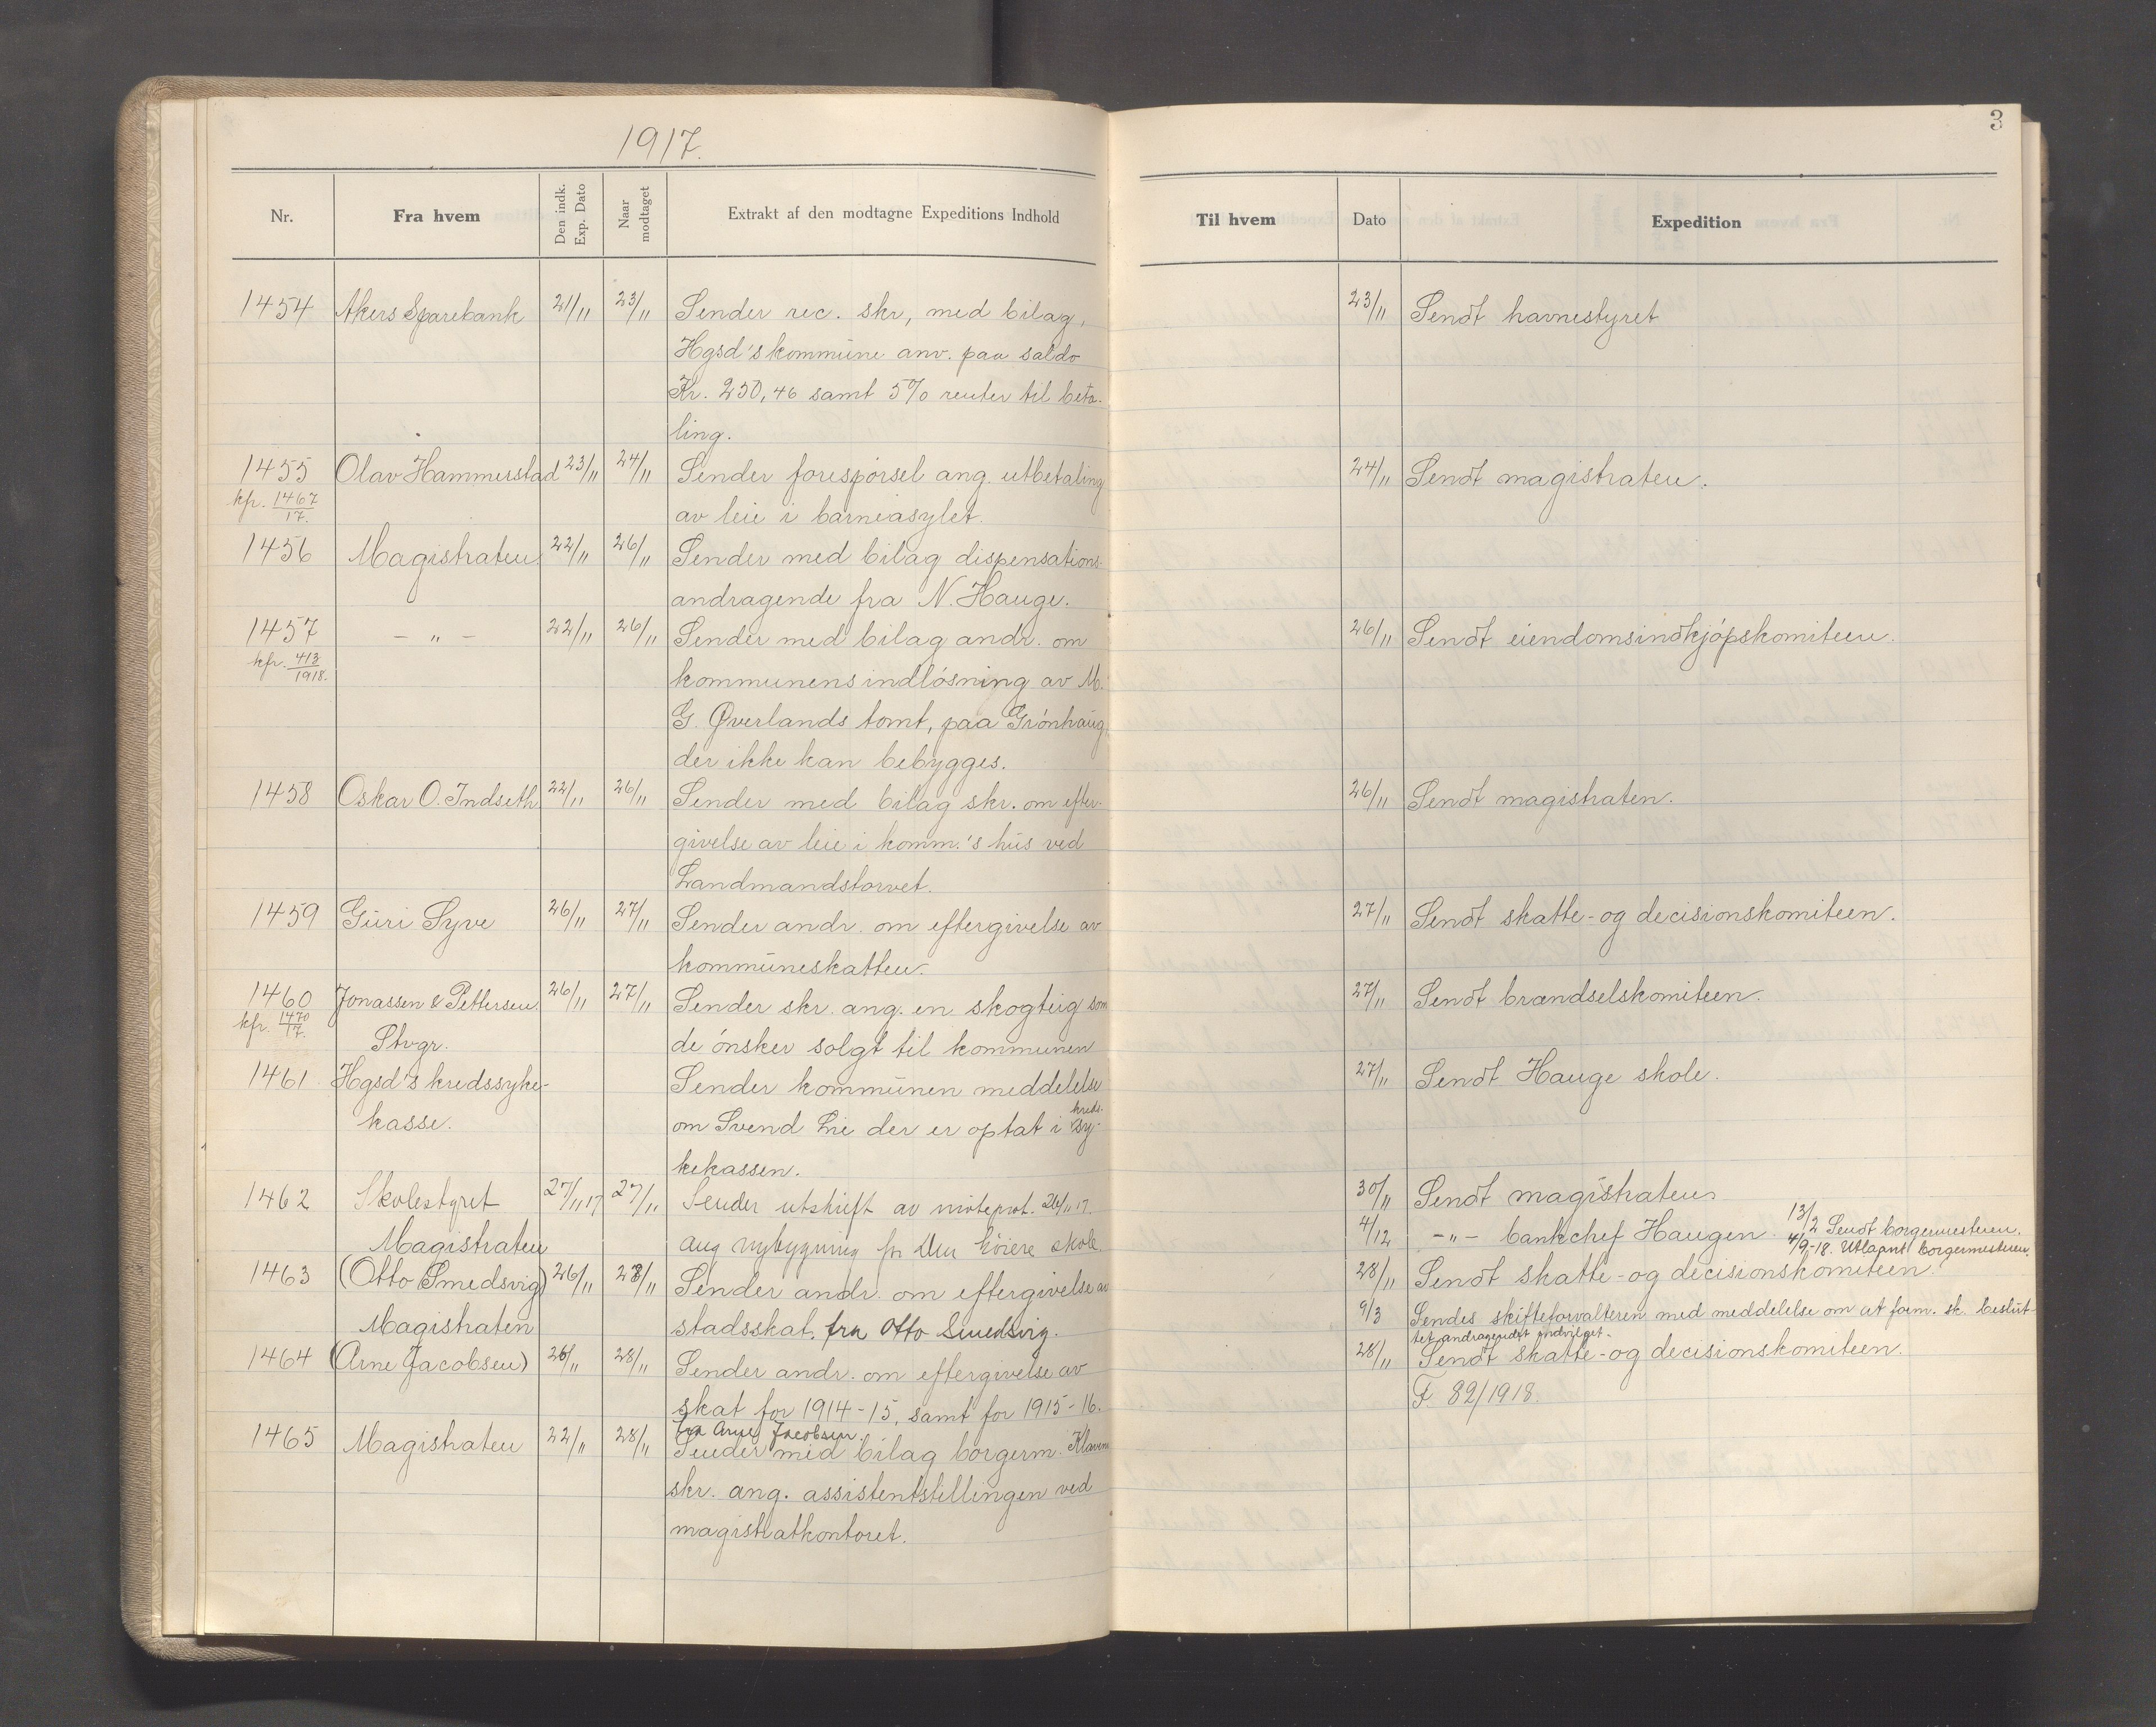 1917.
Nr.
Fra hvem
Den indk. Exp. Dato
Naar modtaget
Extrakt af den modtagne Expeditions Indhold
1454 Akers Sparebank 21/11 23/11 Sender rec. skr, med bilag,
Hgsd's kommune anv. paa saldo
Kr. 250,46 samt 5% renter til beta-
ling.
1455 Olav Hammerstad 23/11 24/11 Sender forespørsel ang. utbetaling
kfr. 1467/17. av leie i barneasylet.
1456 Magistraten 22/11 26/11 Sender med bilag dispensations-
andragende fra N. Hauge.
1457 - " - 22/11 26/11 Sender med bilag andr. om
kfr. 413/1918. kommunens indløsning av M.
G. Øverlands tomt, paa Grønhaug,
der ikke kan bebygges.
1458 Oskar O. Indseth 22/11 26/11 Sender med bilag skr. om efter-
givelse av leie i komm.'s hus ved
Landmandstorvet.
1459 Guri Syve 26/11 27/11 Sender andr. om eftergivelse av
kommuneskatten.
1460 Jonassen & Pettersen. 26/11 27/11 Sender skr. ang. en skogteig som
kfr. 1470/17. Stvgr. de ønsker solgt til kommunen
1461 Hgsd's kredssyke- Sender kommunen meddelelse
kasse. om Svend Lie der er optat i kreds. sy-
kekassen.
1462 Skolestyret 27/11 17 27/11. Sender utskrift av møteprot. 26/11 17.
Magistraten ang nybygning for den høiere skole
1463 (Otto Smedsvig) 26/11 28/11 Sender andr. om eftergivelse av
Magistraten stadsskat, fra Otto Smedsvig.
1464 (Arne Jacobsen) 26/11 28/11 Sender andr. om eftergivelse av
skat for 1914-15, samt for 1915-16.
fra Arne Jacobsen.
1465 Magistraten 22/11 28/11 Sender med bilag borgerm.
skr. ang. assistentstillingen ved
magistratkontoret.
3
Til hvem
Dato
Expedition
23/11 Sendt havnestyret
24/11 Sendt magistraten.
26/11 Sendt eiendomsindkjøpskomiteen.
26/11 Sendt magistraten.
27/11 Sendt skatte- og decisionskomiteen.
27/11 Sendt brændselskomiteen.
27/11 Sendt Hauge skole.
30/11 Sendt magistraten
4/12 - " - bankchef Haugen. 13/2 Sendt borgermesteren.
4/9-18. Utlaant borgermesteren.
28/11 Sendt skatte- og decisionskomiteen.
9/3 Sendes skifteforvalteren med meddelelse om at form. sk. beslut-
tet andragendet indvilget.
28/11 Sendt skatte- og decisionskomiteen.
F 82/1918.